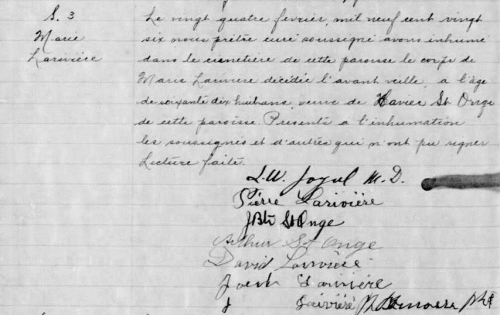 S. 3
Marie
Larivière
Le vingt quatre fevrier, mil neuf cent vingt
six nous prêtre curé soussigné avons inhumé
dans le cimetière de cette paroisse le corps de
Marie Lariviere décédée l'avant veille, a l'âge
de soixante dix huit ans, veuve de Xavier St Onge
de cette paroisse. Presents a l'inhumation
les soussignés et d'autres qui n'ont pu signer
Lecture faite.
L.U. Joyal M.D.
Pierre Larivière
JBte St Onge
Arthur St Onge
David Larivière
Larivière
J Larivière